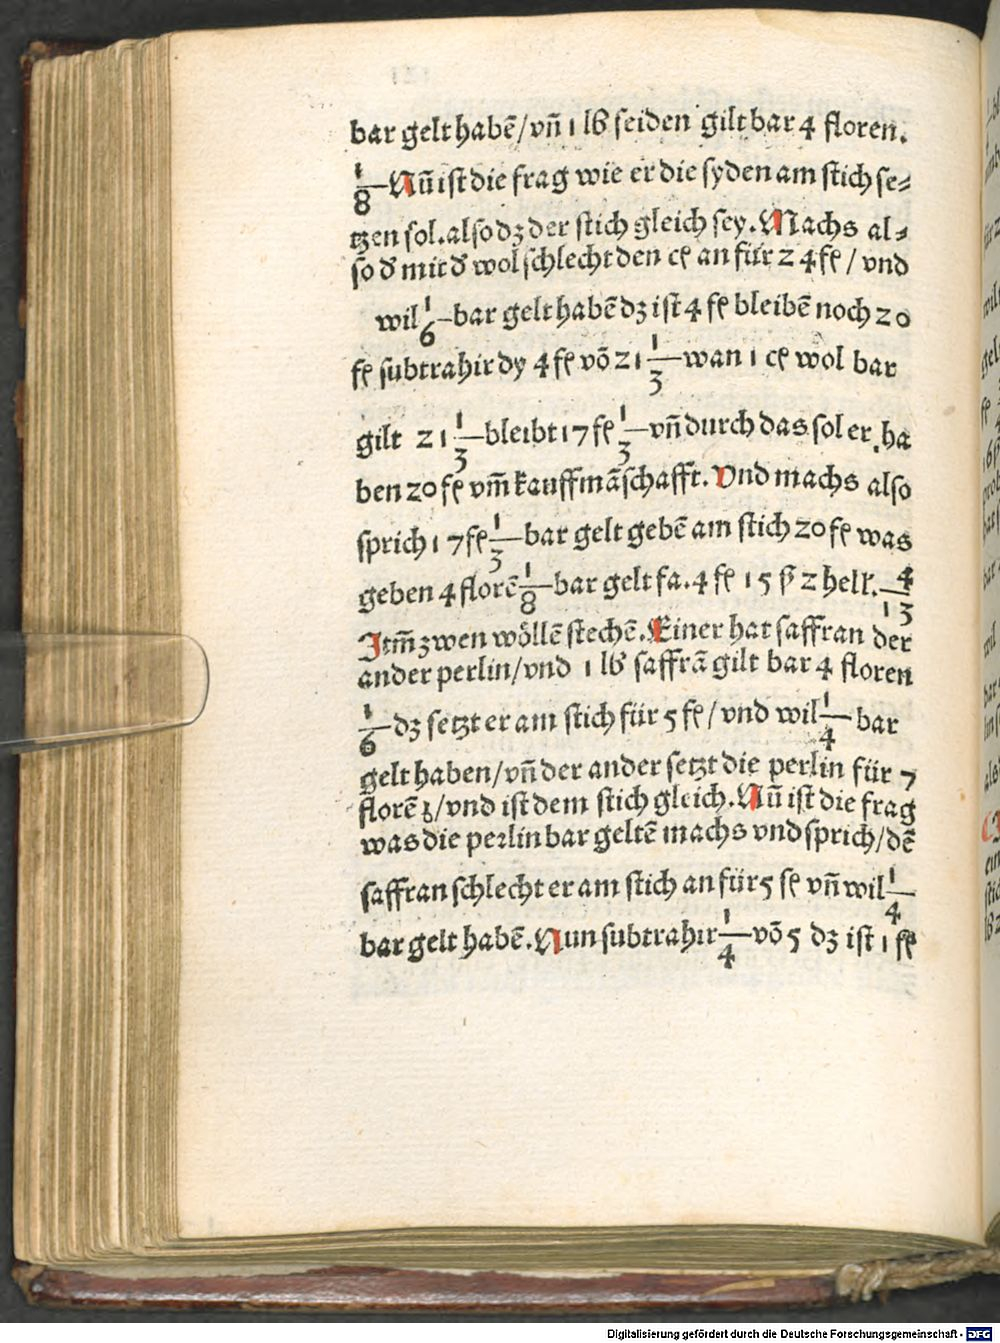 bar gelt habē/vn̄ 1 lb seiden gilt bar 4 floren.
1/8 Nū ist die frag wie er die syden am stich se⸗
tzen sol.also dz der stich gleich sey.Machs al⸗
so d̕ mit d̕ wol schlecht den cē an für 24 fl/vnd
wil 1/6 bar gelt habē dz ist 4 fl bleibē noch 20
fl subtrahir dy 4 fl vō 21 1/3 wan 1 cē wol bar
gilt 21 1/3 bleibt 17 fl 1/3 vn̄ durch das sol er ha
ben 20 fl vm̄ kauffmāschafft. Vnd machs also
sprich 17 fl 1/3 bar gelt gebē am stich 20 fl was
geben 4 florē 1/8 bar gelt fa. 4 fl 15 ß 2 hell. 4/13
Itm̄ zwen wöllē stechē.Einer hat saffran der
ander perlin/vnd 1 lb saffrā gilt bar 4 floren
1/6 dz setzt er am stich für 5 fl/vnd wil 1/4 bar
gelt haben/vn̄ der ander setzt die perlin für 7
florē ꝫ/vnd ist dem stich gleich.Nū ist die frag
was die perlin bar geltē machs vnd sprich/dē
saffran schlecht er am stich an für 5 fl vn̄ wil 1/4
bar gelt habē.Nun subtrahir 1/4 vō 5 dz ist 1 fl
Digitalisierung gefördert durch die Deutsche Forschungsgemeinschaft - DFG